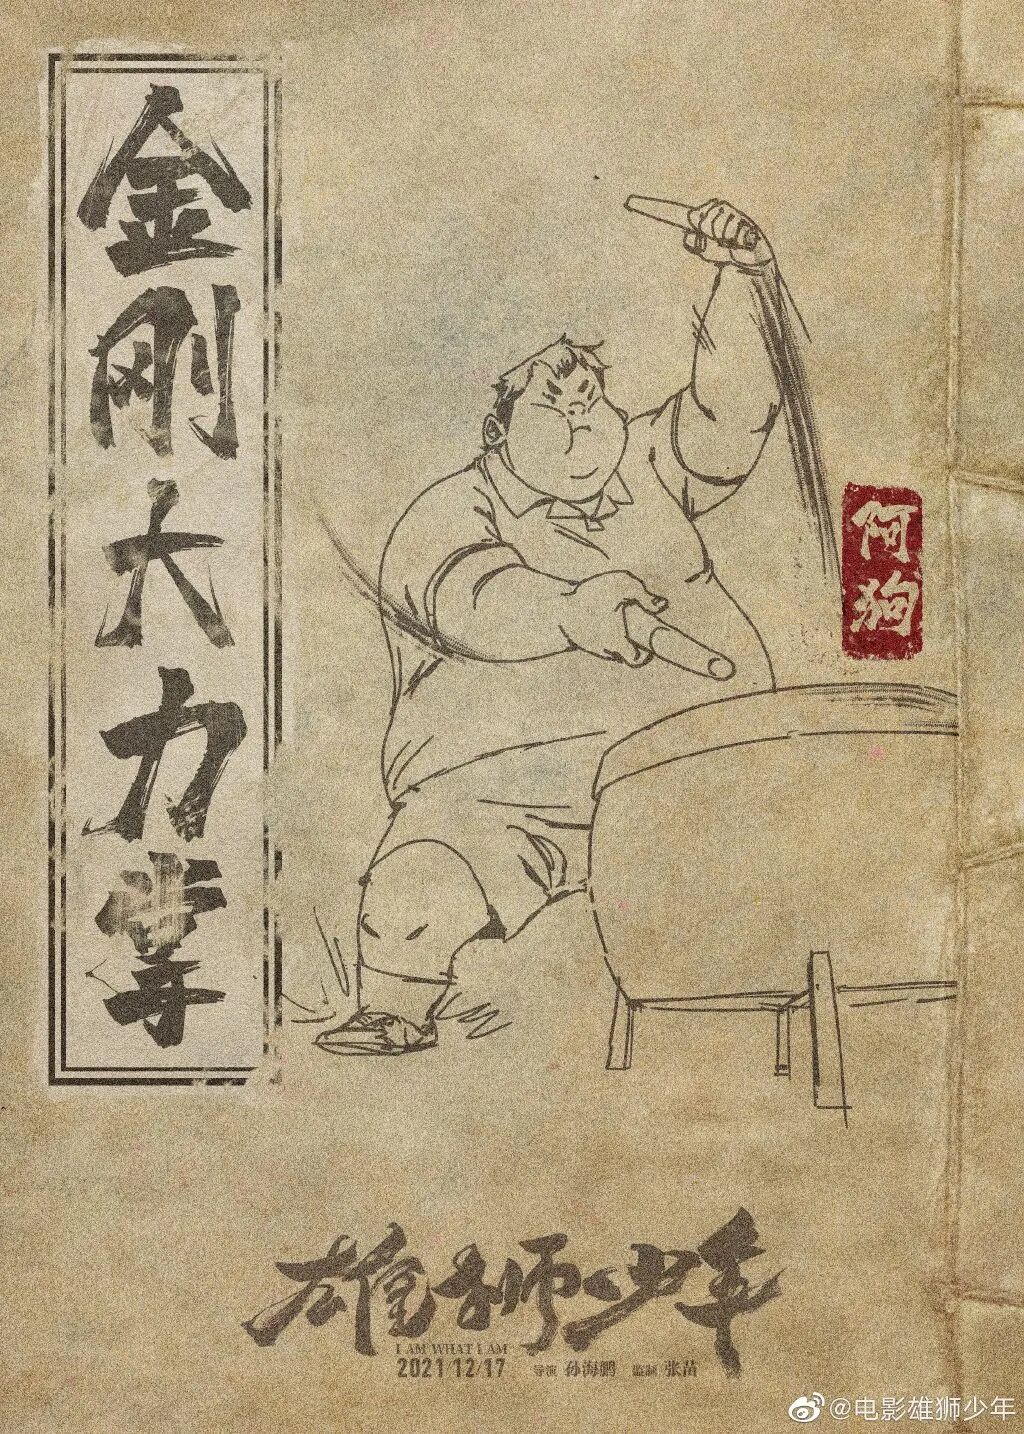 金刚大力掌
阿狗
雄狮少年
I AM WHAT I AM
2021/12/17 导演 孙海鹏 监制 张苗
@电影雄狮少年